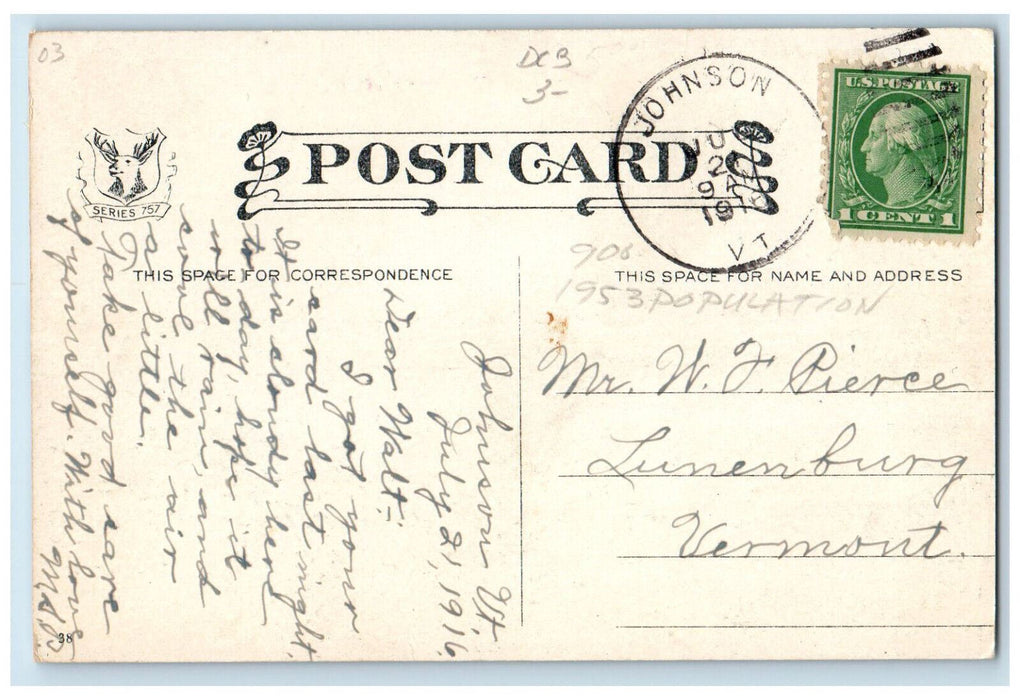 03
DCB
3-
JOHNSON
JUL
2
9 A
1916
VT
U.S. POSTAGE
1 CENT 1
SERIES 757
POST CARD
THIS SPACE FOR CORRESPONDENCE
THIS SPACE FOR NAME AND ADDRESS
908
1953 POPULATION
Johnson Vt.
July 21, 1916
Dear Walt:-
I got your
card last night.
It is cloudy here
to day, hope it
will rain, and
cool the air
a little.
Take good care
of yourself. With love
Mr. W. F. Pierce
Lunenburg
Vermont.
38